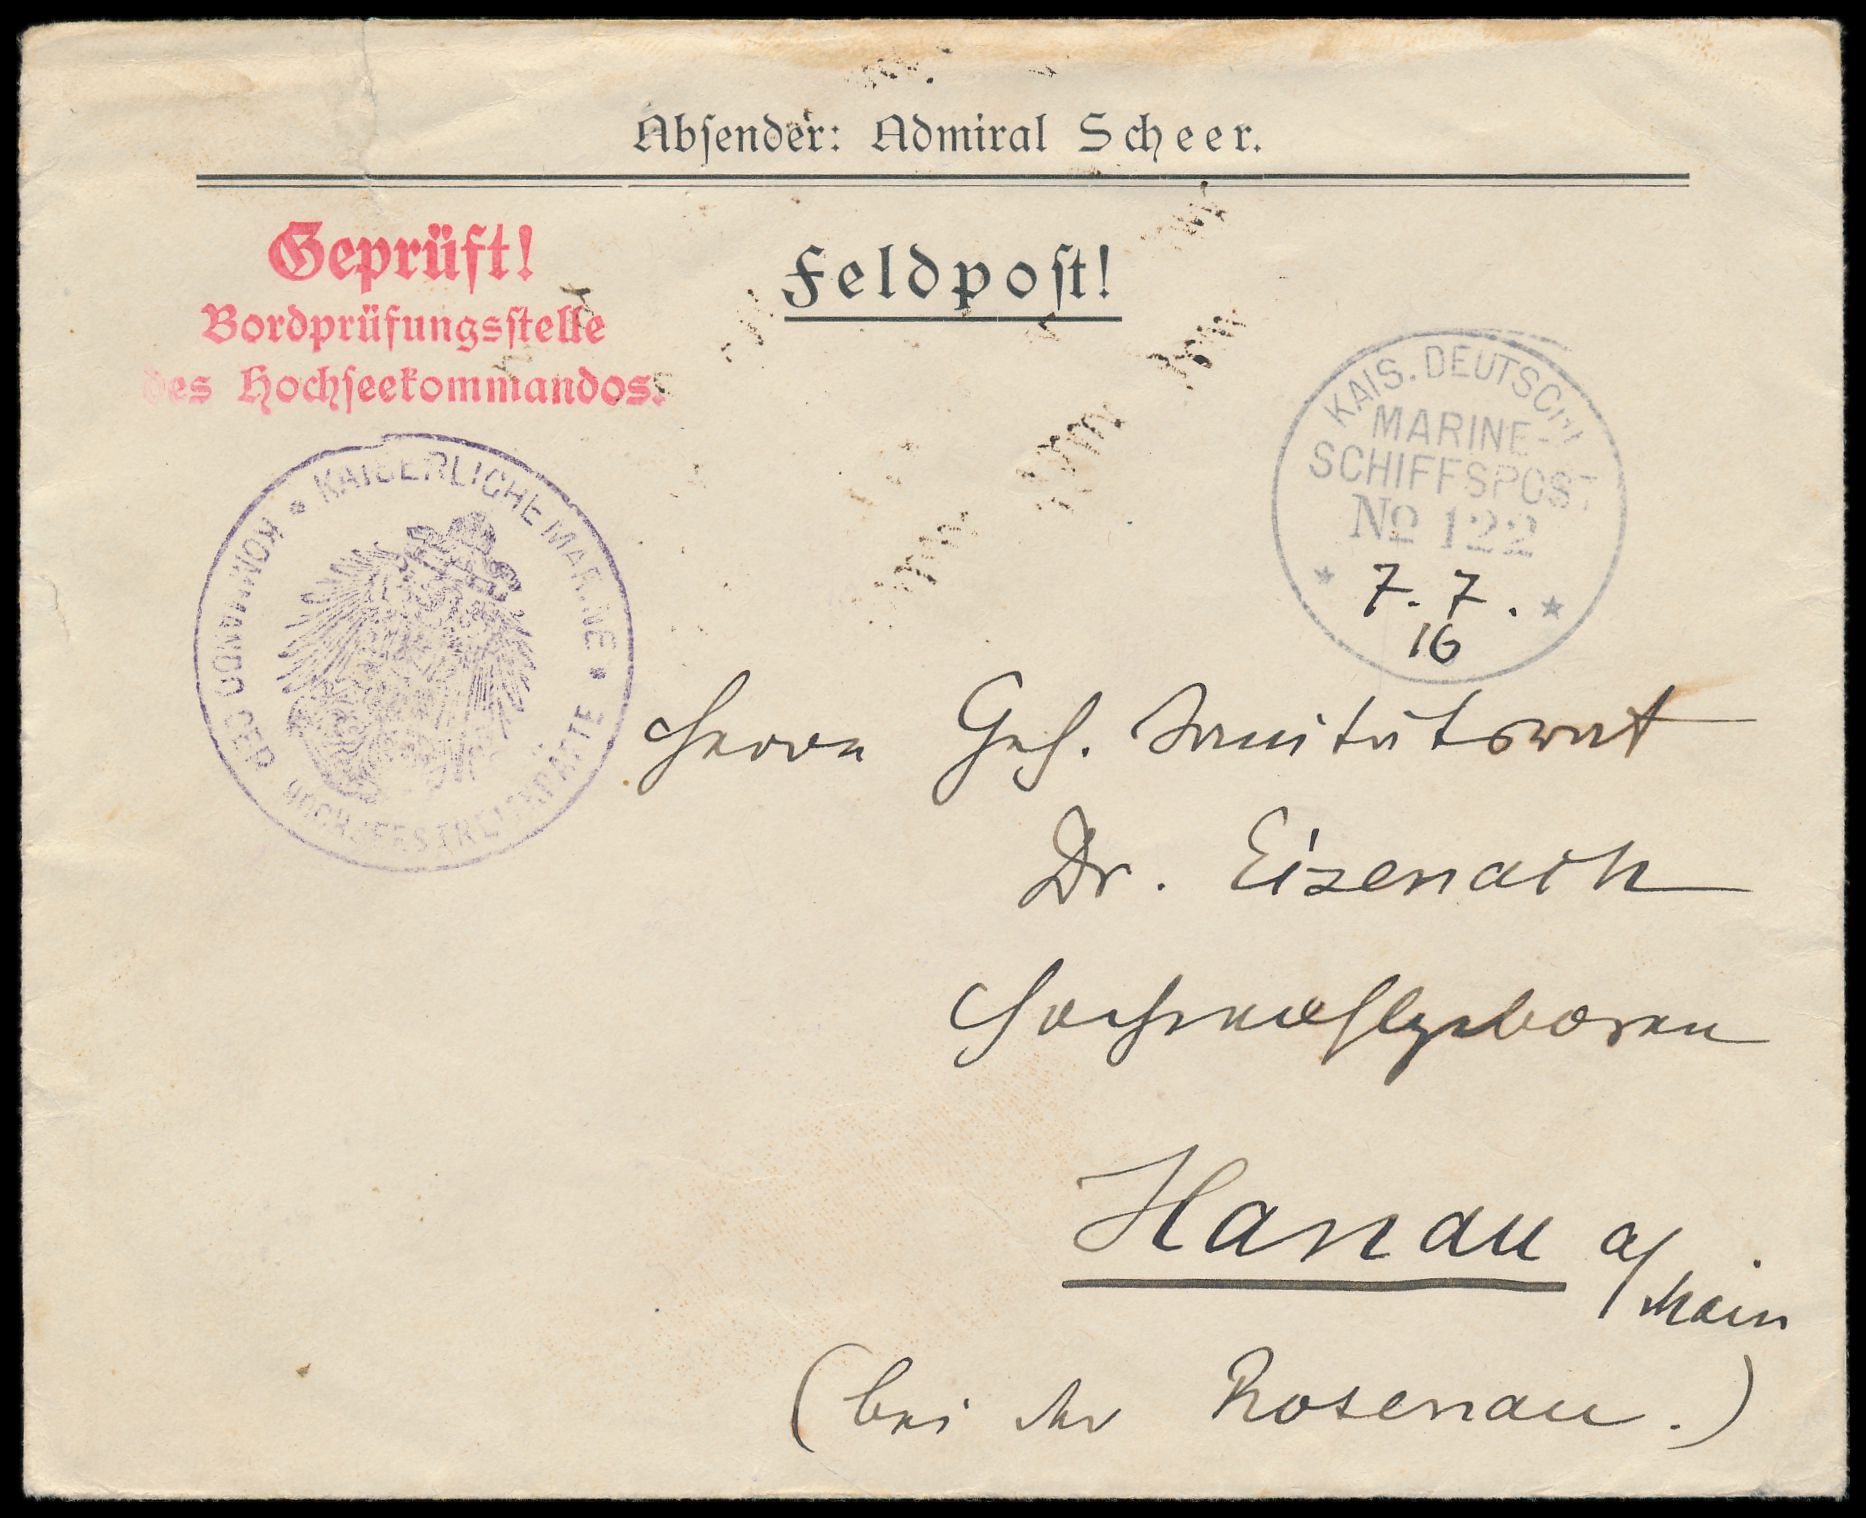 Absender: Admiral Scheer.
Feldpost!
Geprüft!
Bordprüfungsstelle
des Hochseekommandos.
KAIS. DEUTSCHE
MARINE-
SCHIFFSPOST
No 122
7. 7.
16
* KAISERLICHE MARINE *
KOMMANDO DER HOCHSEESTREITKRÄFTE
Herrn Geh. Sanitätsrat
Dr. Eisenach
Hochwohlgeboren
Hanau a/Main
(bei der Rosenau.)